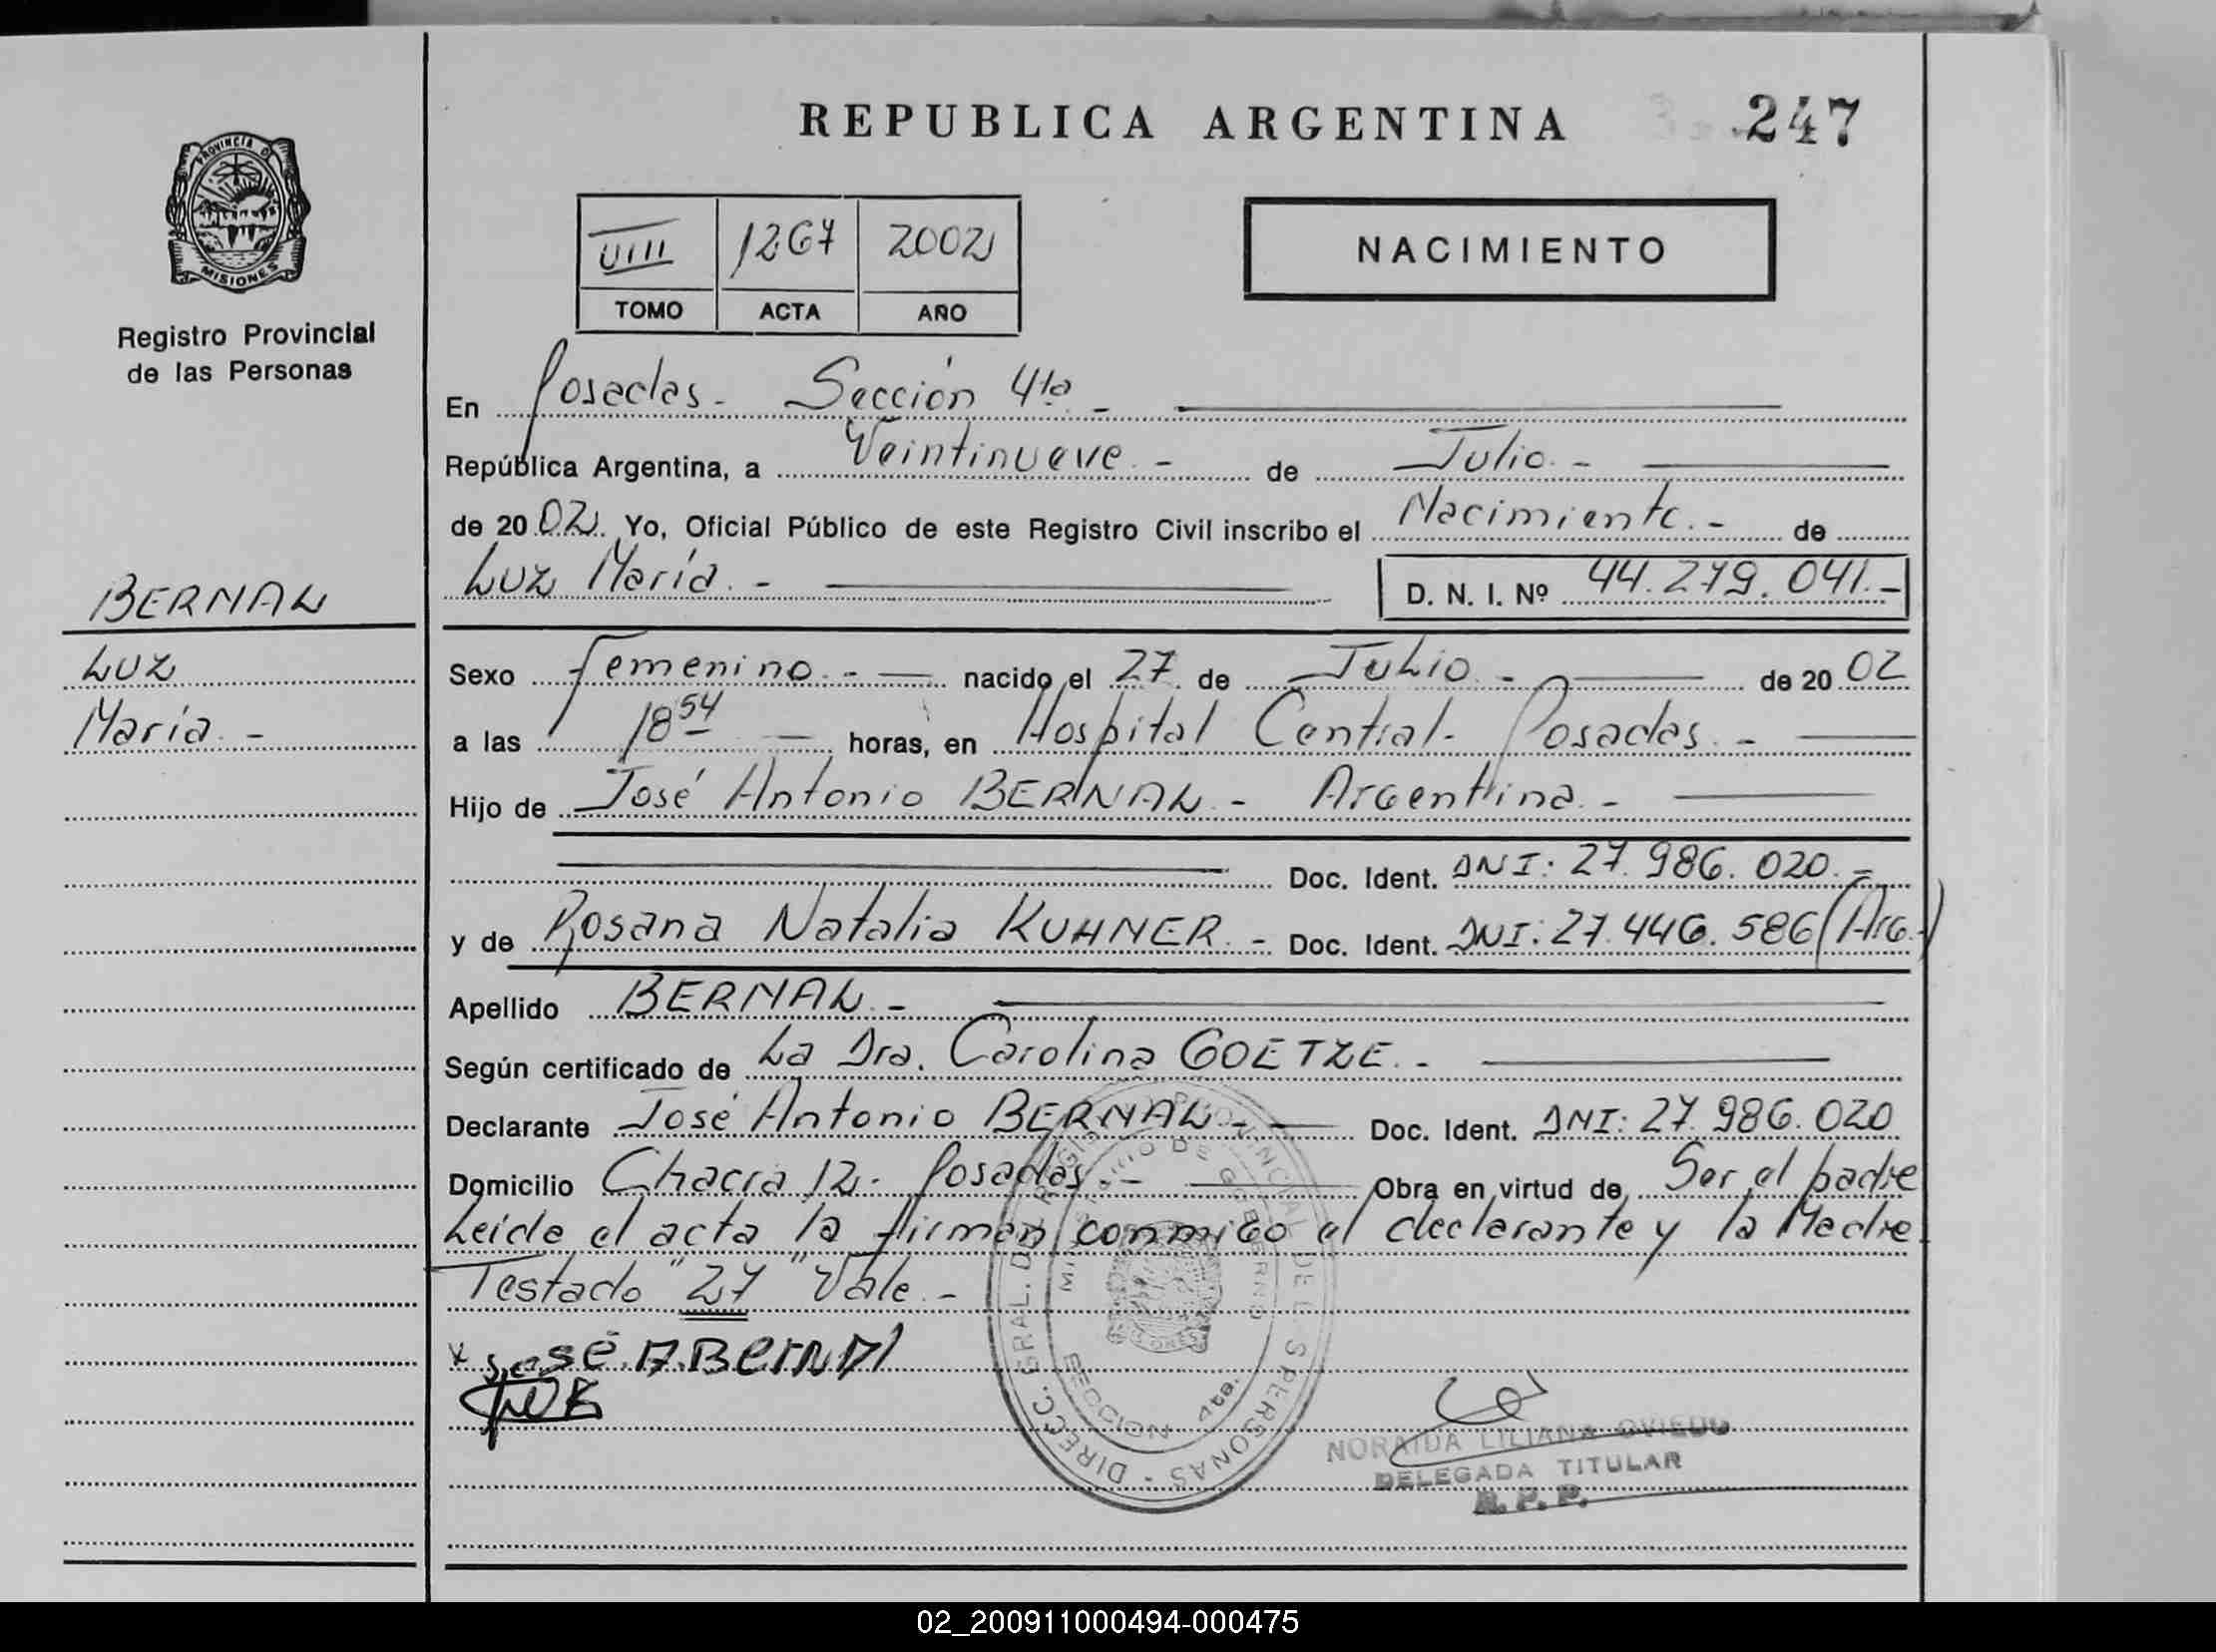 REPUBLICA ARGENTINA 247
PROVINCIA DE
MISIONES
Registro Provincial
de las Personas
VIII 1267 2002
TOMO ACTA AÑO
NACIMIENTO
En Posadas - Sección 4ta -
República Argentina, a Veintinueve - de Julio -
de 2002. Yo, Oficial Público de este Registro Civil inscribo el Nacimiento - de
Luz María - D. N. I. Nº 44.279.041.-
BERNAL
Luz
María -
Sexo Femenino - nacido el 27 de Julio - de 2002
a las 18 54 horas, en Hospital Central - Posadas -
Hijo de José Antonio BERNAL - Argentina -
Doc. Ident. DNI: 27.986.020.-
y de Rosana Natalia KUHNER - Doc. Ident. DNI: 27.446.586 (Arg.)
Apellido BERNAL -
Según certificado de La Dra. Carolina GOETZE. -
Declarante José Antonio BERNAL - Doc. Ident. DNI: 27.986.020
Domicilio Chacra 12 - Posadas - Obra en virtud de Ser el padre
Leída el acta la firman conmigo el declarante y la Madre.
Testado "27" Vale. -
x José A. Bernal
DIRECC. GRAL. DEL REGISTRO PROVINCIAL DE LAS PERSONAS
MINISTERIO DE GOBIERNO
SECCION 4ta.
NORAIDA LILIANA OVIEDO
DELEGADA TITULAR
R. P. P.
02_200911000494-000475